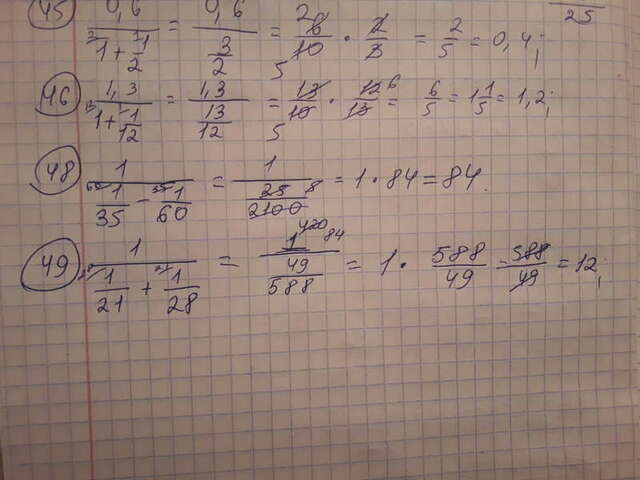 45
0,6 / (1 + 1/2) = 0,6 / (3/2) = 6/10 · 2/3 = 2/5 = 0,4;
25
46
1,3 / (1 + 1/12) = 1,3 / (13/12) = 13/10 · 12/13 = 6/5 = 1 1/5 = 1,2;
48
1 / (1/35 - 1/60) = 1 / (25/2100) = 1 · 84 = 84.
49
1 / (1/21 + 1/28) = 1 / (49/588) = 1 · 588/49 = 588/49 = 12;